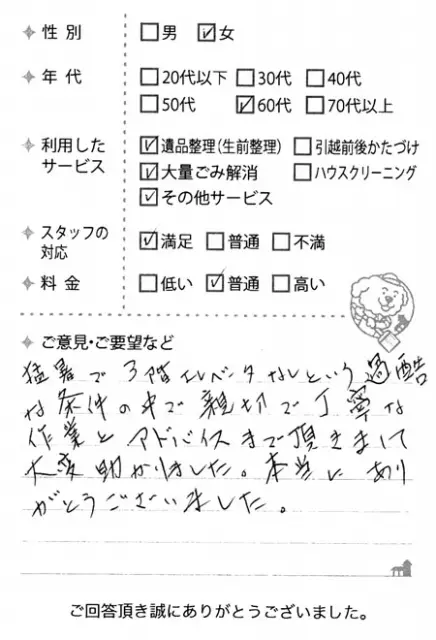 性別 □男 ☑女
年代 □20代以下 □30代 □40代
□50代 ☑60代 □70代以上
利用した ☑遺品整理(生前整理) □引越前後かたづけ
サービス ☑大量ごみ解消 □ハウスクリーニング
☑その他サービス
スタッフの ☑満足 □普通 □不満
対応
料金 □低い ☑普通 □高い
ご意見・ご要望など
猛暑で3階エレベータなしという過酷
な条件の中で親切で丁寧な
作業とアドバイスまで頂きまして
大変助かりました。本当にあり
がとうございました。
ご回答頂き誠にありがとうございました。